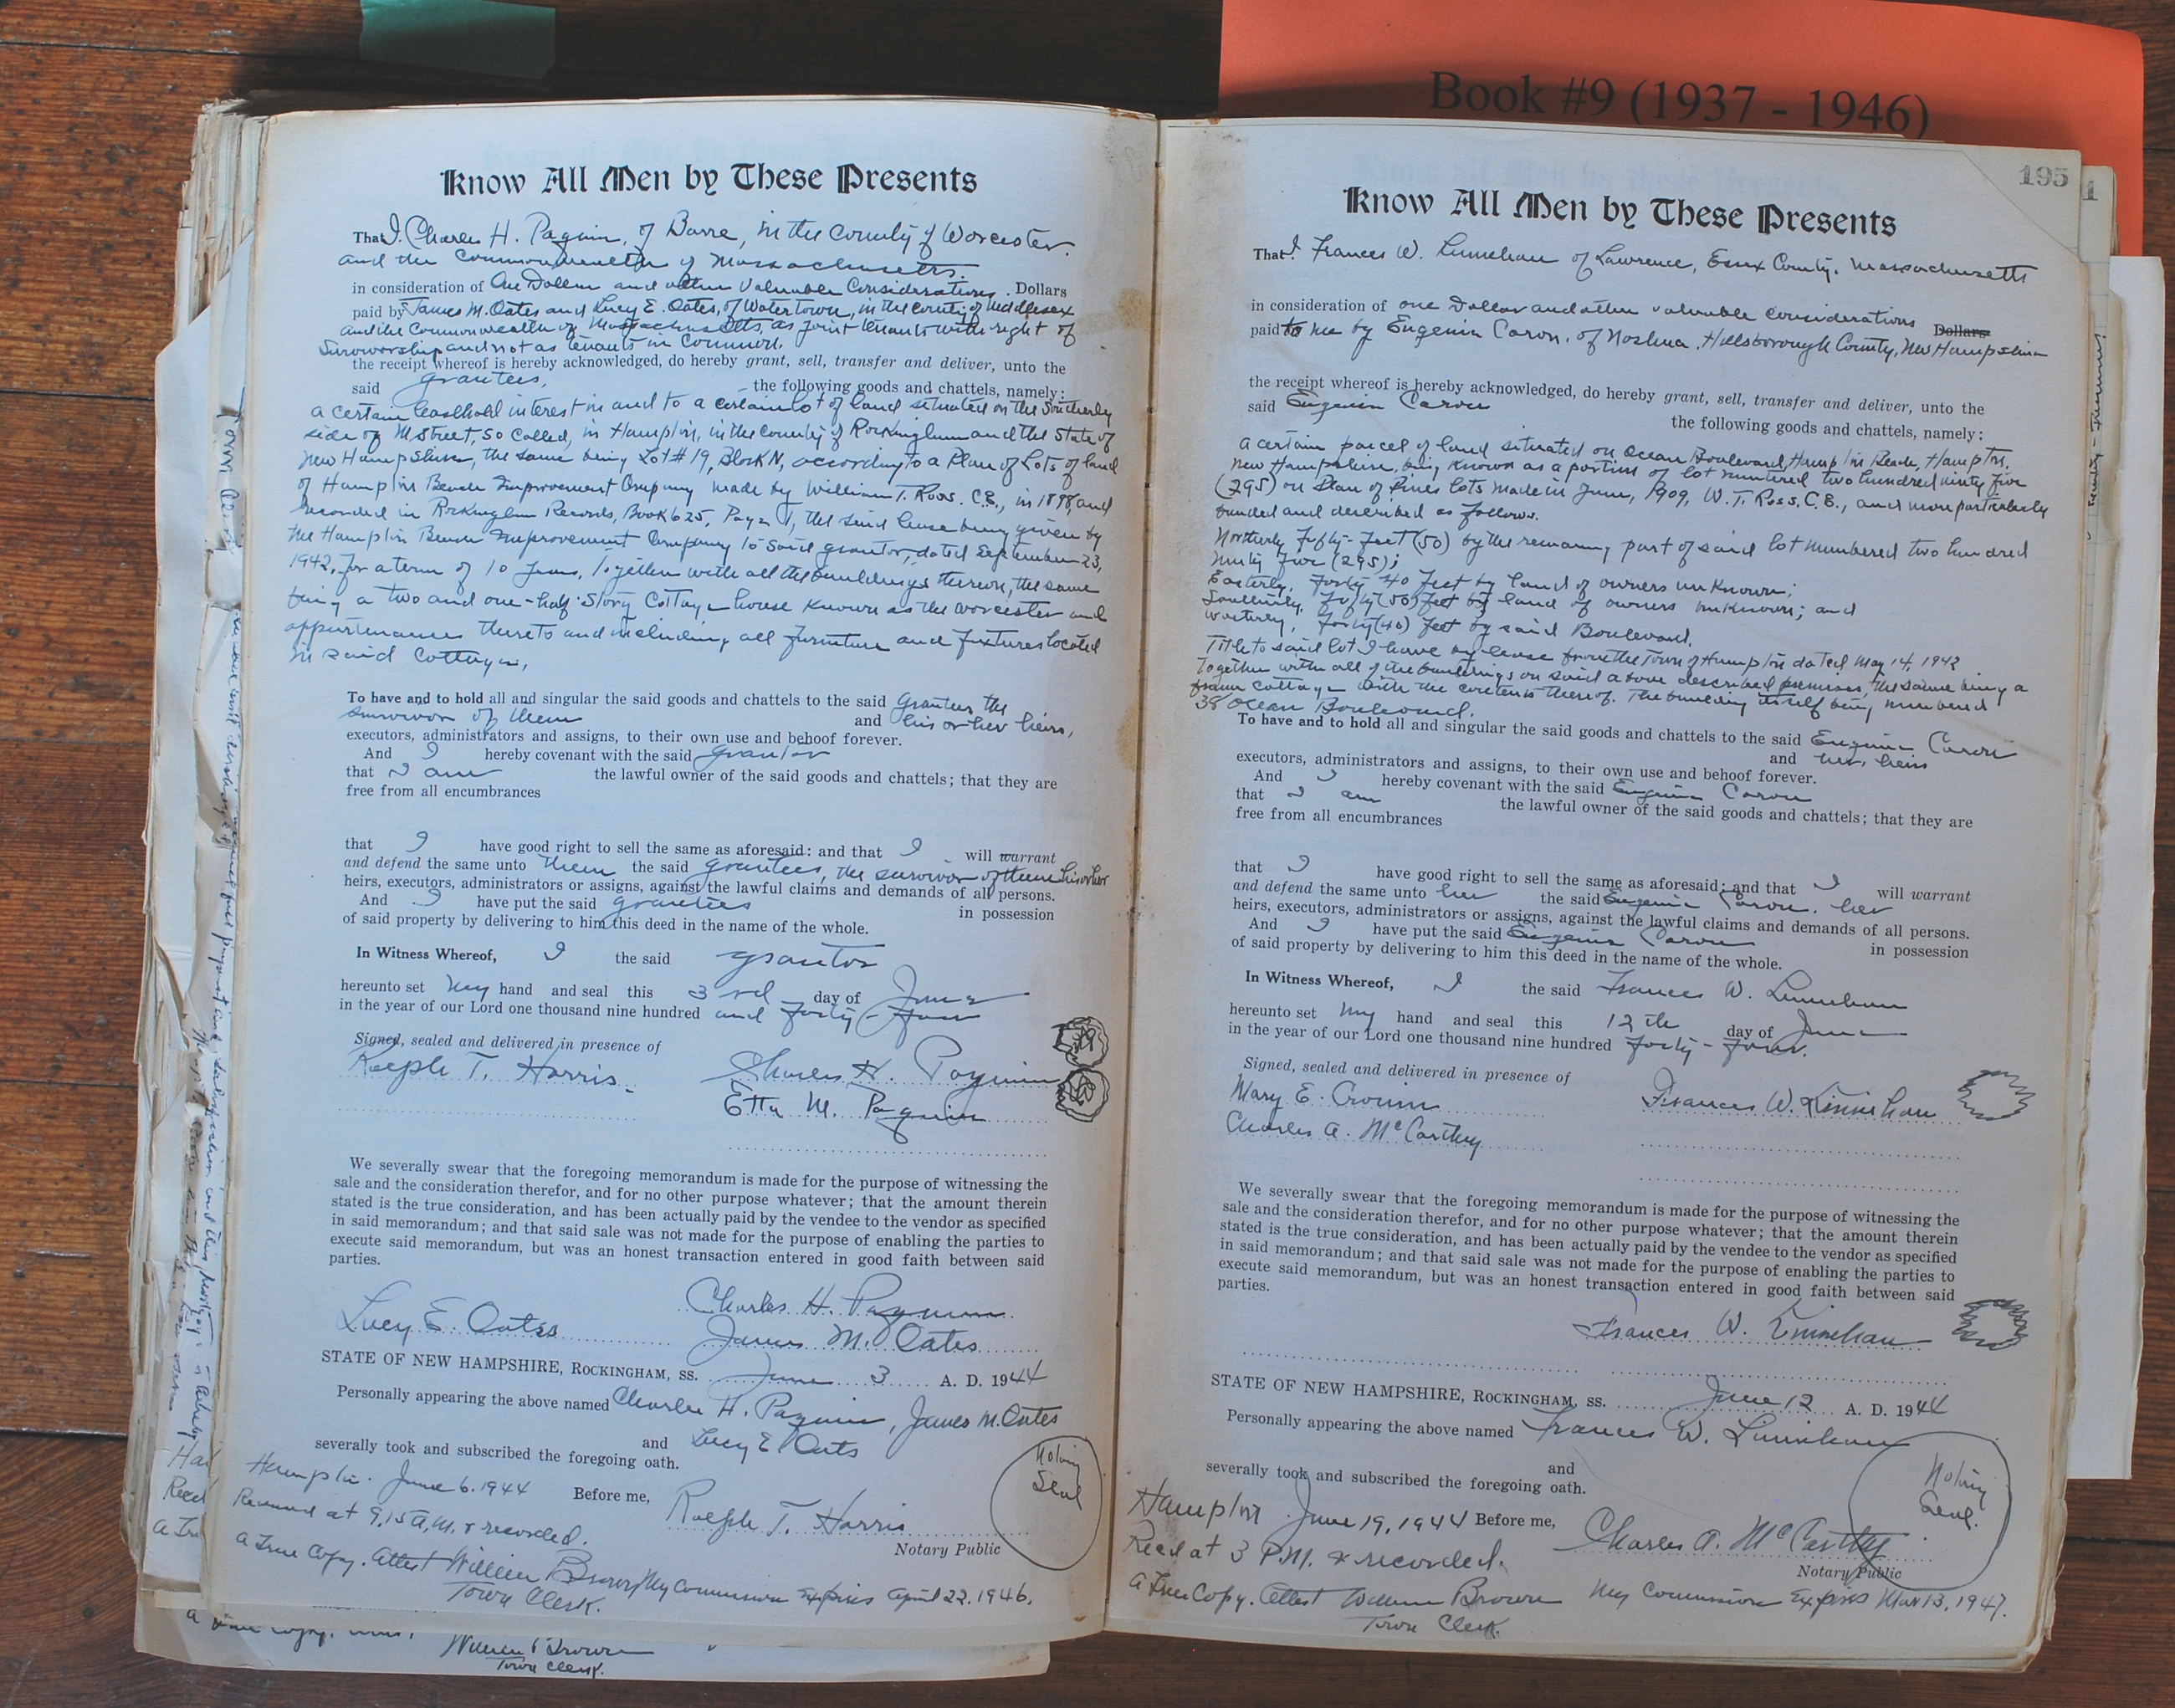 Book #9 (1937 - 1946)
Know All Men by These Presents
That I. Charles H. Paquin, of Barre, in the County of Worcester
and the Commonwealth of Massachusetts.
in consideration of One Dollar and other Valuable Considerations. Dollars
paid by James M. Oates and Lucy E. Oates, of Watertown, in the county of Middlesex
and the Commonwealth of Massachusetts, as joint tenants with right of
Survivorship and not as tenants in Common.
the receipt whereof is hereby acknowledged, do hereby grant, sell, transfer and deliver, unto the
said grantees, the following goods and chattels, namely:
a certain leasehold interest in and to a certain lot of land situated on the Southerly
side of M Street, so called, in Hampton, in the County of Rockingham and the State of
New Hampshire, the same being Lot # 19, Block N, according to a Plan of Lots of land
of Hampton Beach Improvement Company made by William T. Ross. C.E., in 1898, and
recorded in Rockingham Records, Book 625, Page 1, the said lease being given by
the Hampton Beach Improvement Company to said grantor, dated September 23,
1942, for a term of 10 years, Together with all the buildings thereon, the same
being a two and one-half-Story Cottage house known as the Worcester and
appurtenances thereto and including all furniture and fixtures located
in said Cottage,
To have and to hold all and singular the said goods and chattels to the said grantees the
survivor of them and his or her heirs,
executors, administrators and assigns, to their own use and behoof forever.
And I hereby covenant with the said grantor
that I am the lawful owner of the said goods and chattels; that they are
free from all encumbrances
that I have good right to sell the same as aforesaid: and that I will warrant
and defend the same unto them the said grantees, the survivor of them his or her
heirs, executors, administrators or assigns, against the lawful claims and demands of all persons.
And I have put the said grantees in possession
of said property by delivering to him this deed in the name of the whole.
In Witness Whereof, I the said grantor
hereunto set my hand and seal this 3rd day of June
in the year of our Lord one thousand nine hundred and forty-four
Signed, sealed and delivered in presence of
Ralph T. Harris. Charles H. Paquin
Etta M. Paquin
We severally swear that the foregoing memorandum is made for the purpose of witnessing the
sale and the consideration therefor, and for no other purpose whatever; that the amount therein
stated is the true consideration, and has been actually paid by the vendee to the vendor as specified
in said memorandum; and that said sale was not made for the purpose of enabling the parties to
execute said memorandum, but was an honest transaction entered in good faith between said
parties.
Charles H. Paquin
Lucy E. Oates James M. Oates
STATE OF NEW HAMPSHIRE, ROCKINGHAM, SS. June 3 A. D. 1944
Personally appearing the above named Charles H. Paquin, James M. Oates
and Lucy E Oats
severally took and subscribed the foregoing oath.
Hampton. June 6. 1944 Before me,
Received at 9.15 A.M. & recorded. Ralph T. Harris
Notary Public
Notary
Seal
A True Copy. Attest William Brown My Commission Expires April 22. 1946.
Town Clerk.
William Brown
Town Clerk.
195
Know All Men by These Presents
That I Frances W. Linnehan of Lawrence, Essex County, Massachusetts
in consideration of one Dollar and other valuable considerations Dollars
paid to me by Eugenia Caron, of Nashua, Hillsborough County, New Hampshire
the receipt whereof is hereby acknowledged, do hereby grant, sell, transfer and deliver, unto the
said Eugenia Caron
the following goods and chattels, namely:
a certain parcel of land situated on Ocean Boulevard, Hampton Beach, Hampton,
New Hampshire, being known as a portion of lot numbered two hundred ninty five
(295) on Plan of Pines lots made in June, 1909, W. T. Ross. C.E., and more particularly
bounded and described as follows.
Northerly Fifty-feet (50) by the remaining part of said lot numbered two hundred
ninty five (295);
Easterly, Forty 40 Feet by land of owners unknown;
Southerly, Fifty (50) feet by land of owners unknown; and
Westerly, Forty (40) feet by said Boulevard.
Title to said lot I have by lease from the Town of Hampton dated May 14, 1942
Together with all of the buildings on said above described premises, the same being a
frame cottage with the contents thereof. The building itself being numbered
38 Ocean Boulevard.
To have and to hold all and singular the said goods and chattels to the said Eugenia Caron
and her heirs
executors, administrators and assigns, to their own use and behoof forever.
And I hereby covenant with the said Eugenia Caron
that I am the lawful owner of the said goods and chattels; that they are
free from all encumbrances
that I have good right to sell the same as aforesaid: and that I will warrant
and defend the same unto her the said Eugenia Caron. her
heirs, executors, administrators or assigns, against the lawful claims and demands of all persons.
And I have put the said Eugenia Caron in possession
of said property by delivering to him this deed in the name of the whole.
In Witness Whereof, I the said Frances W. Linnehan
hereunto set my hand and seal this 12th day of June
in the year of our Lord one thousand nine hundred forty-four.
Signed, sealed and delivered in presence of
Mary E. Cronin Frances W. Linnehan
Charles A. McCarthy
We severally swear that the foregoing memorandum is made for the purpose of witnessing the
sale and the consideration therefor, and for no other purpose whatever; that the amount therein
stated is the true consideration, and has been actually paid by the vendee to the vendor as specified
in said memorandum; and that said sale was not made for the purpose of enabling the parties to
execute said memorandum, but was an honest transaction entered in good faith between said
parties.
Frances W. Linnehan
STATE OF NEW HAMPSHIRE, ROCKINGHAM, SS. June 12 A. D. 1944
Personally appearing the above named Frances W. Linnehan
and
severally took and subscribed the foregoing oath.
Hampton June 19, 1944 Before me,
Recd at 3 P.M. & recorded. Charles A. McCarthy
Notary Public
Notary
Seal.
A True Copy. Attest William Brown My Commission Expires Mar 13, 1947.
Town Clerk.